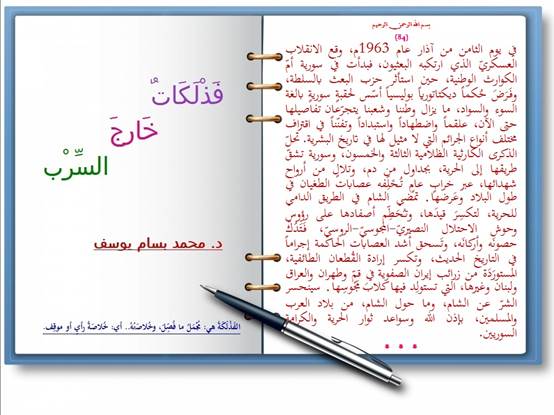 بسم الله الرحمن الرحيم
(84)
في يوم الثامن من آذار عام 1963م، وقع الانقلاب
العسكريّ الذي ارتكبه البعثيون، فبدأت في سورية أمّ
الكوارث الوطنية، حين استأثر حزب البعث بالسلطة،
وفَرَضَ حُكماً ديكتاتورياً بوليسياً أسّس لحقبةٍ سوريةٍ بالغة
السوء والسواد، ما يزال وطننا وشعبنا يتجرّعان تفاصيلها
حتى الآن، علقماً واضطهاداً واستبداداً وتفنّناً في اقتراف
مختلف أنواع الجرائم التي لا مثيل لها في تاريخ البشرية. تحلّ
الذكرى الكارثية الظلامية الثالثة والخمسون، وسورية تشقّ
طريقها إلى الحرية، بجداول من دم، وتلالٍ من أرواح
شهدائها، عبر خرابٍ عامٍ تُخلّفه عصابات الطغيان في
طول البلاد وعَرضها. تمضي الشام في الطريق الدامي
للحرية، لتكسِرَ قيدَها، وتُحطِّم أصفادها على رؤوس
وحوش الاحتلال النصيريّ-المجوسيّ-الروسيّ، فَتَدُكّ
حصونَه وأركانَه، وتَسحق أشد العصابات الحاكمة إجراماً
في التاريخ الحديث، وتكسر إرادة القُطعان الطائفية،
المستورَدَة من زرائب إيران الصفوية في قم وطهران والعراق
ولبنان وغيرها، التي تستولِد فيها كلابَ مَجوسِها. سينحسر
الشرّ عن الشام، وما حول الشام، من بلاد العرب
والمسلمين، بإذن الله وسواعد ثوار الحرية والكرامة
السوريين.
فَذْلَكَاتٌ
خَارجَ
السِّرْب
د. محمد بسام يوسف
الفَذْلَكَةُ هي: مُجْمَلُ ما فُصِّلَ، وخُلاصَتُهُ.. أي: خُلاصَةُ رأيٍ أو موقِف.